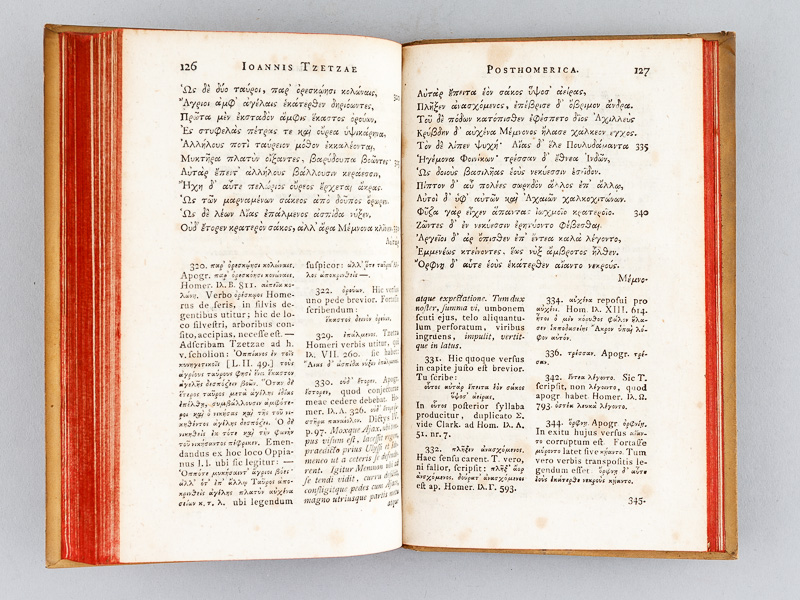 126 IOANNIS TZETZAE
Ὡς δὲ δύο ταῦροι, παρ' ὀρεσκῴησι κολώναις,
Ἄγριοι ἀμφ' ἀγέλαις ἑκάτερθεν δηριόωντες,
Πρῶτα μὲν ἐκσταδὸν ἀμφὶς ἕκαστος ὀρούων,
Ἐς στυφελὰς πέτρας τε καὶ οὔρεα ὑψικάρηνα,
Ἀλλήλους ποτὶ ταύρειον μόθον ἐκκαλέονται,
Μυκτῆρα πλατὺν οἰξαντες, βαρύδουπα βοῶντες·
Αὐτὰρ ἔπειτ' ἀλλήλους βάλλουσιν κεράεσσιν,
Ἠχὴ δ' αὖτε πελώριος οὔρεος ἔρχεται ἄκρας·
Ὣς τῶν μαρναμένων σάκεος ἀπὸ δοῦπος ὀρώρει.
Ὡς δὲ λέων Αἴας ἐπάλμενος ἀσπίδα νύξεν,
Οὐδ' ἔτορεν κρατερὸν σάκος, ἀλλ' ἄρα Μέμνονα
320. παρ' ὀρεσκῴησι κολώναις.
Apogr. παρ' ὀρεσκῄησι κολώναις.
Homer. Ιλ. Β. 811. αἰπεῖα κο-
λώνη. Verbo ὀρεσκῷοι Home-
rus de feris, in silvis de-
gentibus utitur; hic de lo-
co silvestri, arboribus con-
sito, accipias, necesse est. —
Adscribam Tzetzae ad h.
v. scholion: Ὀππιανὸς ἐν τοῖς
κυνηγετικοῖς [L. II. 49.] τοὺς
ἀγρίους ταύρους φησὶ ἕνα ἕκαστον
ἀγέλης δεσπόζειν βοῶν. Ὅταν δὲ
ἕτερος ταῦρος μετὰ ἀγέλης ἰδίας
ἐπέλθῃ, συμβάλλουσιν ἀμφότε-
ροι καὶ ὁ νικήσας καὶ τῆς τοῦ νι-
κηθέντος ἀγέλης δεσπόζει. Ὁ δὲ
νικηθεὶς ἔν τοτε καὶ τὴν φωνὴν
τοῦ νικήσαντος πέφρικεν. Emen-
dandus ex hoc loco Oppia-
nus l. l. ubi sic legitur: —
Ὁππότε μυκήσαντ' ἄγριοι βόες·
ἀλλ' ὅτ' ἐπ' ἄλλῃ Ταῦροι ἀπο-
κρινθεὶς ἀγέλης πλατὺν αὐχένα
σείων κ. τ. λ. ubi legendum
suspicor:
λοι ἀποκρινθεὶς —.
322. ὀρούων. Hic versus
uno pede brevior. Forasse
scribendum:
ἕκαστος
329. ἐπάλμενος. Tzetza
Homeri verbis utitur, qui
Ιλ. VII. 260. sic habet:
Αἴας δ' ἀσπίδα νύξεν ἐπάλμενος.
330. οὐδ' ἔτορεν. Apogr.
ἔστορεν, quod conjecturae
meae cedere debebat. Ho-
mer. Ιλ. Λ. 326.
Dictys IV.
p. 97. Moxque Ajax,
pus visum est, lacessit
praedicto prius Ulyssi et
meneo ut a ceteris se defende-
rent. Igitur Memnon ubi ad
se tendi vidit, curru
confligitque pedes cum Ajace,
magno utriusque partis metu
atque
POSTHOMERICA. 127
Αὐτὰρ ἔπειτα ἑὸν σάκος ὑψόσ' ἀείρας,
Πλῆξεν ἀνασχόμενος, ἐπέβρισε δ' ὄβριμον ἄνδρα.
Τοῦ δὲ πόδων κατόπισθεν ἐφέσπετο δῖος Ἀχιλλεὺς
Κρύβδην δ' αὐχένα Μέμνονος ἤλασε χάλκεον ἔγχος.
Τὸν δὲ λίπεν ψυχή· Αἴας δ' ἕλε Πουλυδάμαντα 335
Ἡγέμονα Φοινίκων· τρέσσαν δ' ἔθνεα Ἰνδῶν,
Ὡς δοιοὺς βασιλῆας ἑοὺς νεκύεσσιν ἐπίδον.
Πῖπτον δ' αὖ πολέες σωρηδὸν ἄλλος ἐπ' ἄλλῳ,
Αὐτοὶ δ' ὑφ' αὐτῶν καὶ Ἀχαιῶν χαλκοχιτώνων.
Φύζα γὰρ εἶχεν ἅπαντα· ἰωχμοῖο κρατεροῖο. 340
Ζῶντες δ' ἐν νεκύεσσιν ἐρήνυοντο φέβεσθαι.
Ἀργεῖοι δ' ἄρ' ὄπισθεν ἐπ' ἔντεα καλὰ λέγοντο,
Ἐμμενέως κτείνοντες· ἕως νὺξ ἄμβροτος ἦλθεν.
Ὄρφνῃ δ' αὖτε ἑοὺς ἑκάτερθεν αἴαντο νεκρούς.
Μέμνο-
atque expectatione. Tum dux
noster, summa vi, umbonem
scuti ejus, telo aliquantu-
lum perforatum, viribus
ingruens, impulit, vertit-
que in latus.
331. Hic quoque versus
in capite justo est brevior.
Tu scribe:
οὗτος αὐτὰρ ἔπειτα ἑὸν σάκος
ὕψος ἀείρας.
In οὗτος posterior syllaba
producitur, duplicato Σ.
vide Clark. ad Hom. Ιλ. Α.
51. nr. 7.
332. πλῆξεν ἀνασχόμενος.
Haec sensu carent. T. vero,
ni fallor, scripsit: πλῆξ' ἄορ
ἀσχόμενος, δουρατ' ἀνασχόμενος
est ap. Homer. Ιλ. Γ. 593.
334. αὐχένα reposui pro
αὐχέει. Hom. Ιλ. XIII. 614.
ἤτοι ὁ μὲν κόρυθος φάλον ἤλα-
σεν ἱπποδασείης Ἄκρον ὑπαὶ λό-
φον αὐτόν.
336. τρέσσαν. Apogr. τρέ-
σαν.
342. ἔντεα λέγοντο. Sic T.
scripsit, non λέγοιντο, quod
apogr habet Homer. Ιλ. Ω.
793. ὀστέα λευκὰ λέγοντο.
344. ὄρφνῃ. Apogr ὀρφνίῃ.
In exitu hujus versus αἴαν-
το corruptum est Fortasse
μύροντο latet sive κήαντο. Tum
vero verbis transpositis le-
gendum esset ὄρφνῃ δ' αὖτε
ἑοὺς ἑκάτερθε νεκροὺς κήαντο.
345.